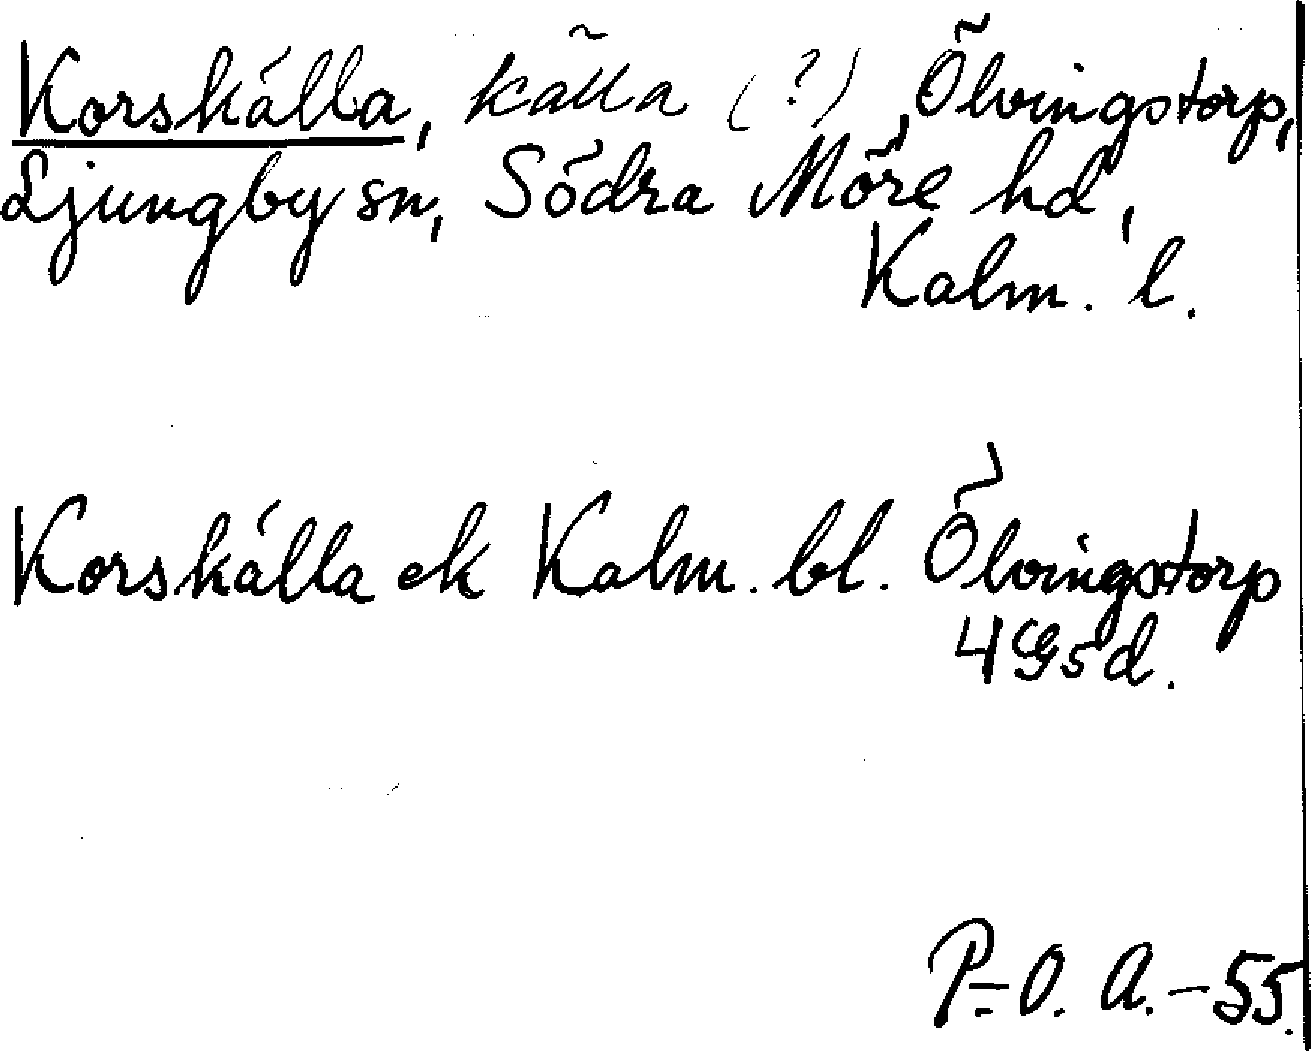 Korskälla, källa (?), Ölvingstorp,
Ljungby sn, Södra Möre hd,
Kalm. l.
Korskälla ek Kalm. bl. Ölvingstorp
4G5d.
P.-O. A.-55.